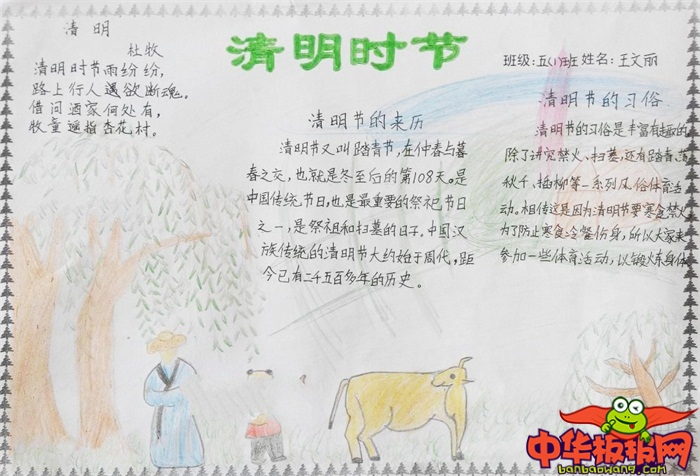 清明
杜牧
清明时节雨纷纷,
路上行人遇欲断魂。
借问酒家何处有,
牧童遥指杏花村。
清明时节
班级:五(1)班 姓名:王文丽
清明节的来历
清明节又叫踏青节,在仲春与暮
春之交,也就是冬至后的第108天。是
中国传统节日,也是最重要的祭祀节日
之一,是祭祖和扫墓的日子。中国汉
族传统的清明节大约始于周代,距
今已有二千五百多年的历史。
清明节的习俗
清明节的习俗是丰富有趣的
除了讲究禁火、扫墓,还有踏青、荡
秋千、插柳等一系列风俗体育活
动。相传这是因为清明节要寒食禁火
为了防止寒食冷餐伤身,所以大家来
参加一些体育活动,以锻炼身体
中华板报网
banbaowang.com